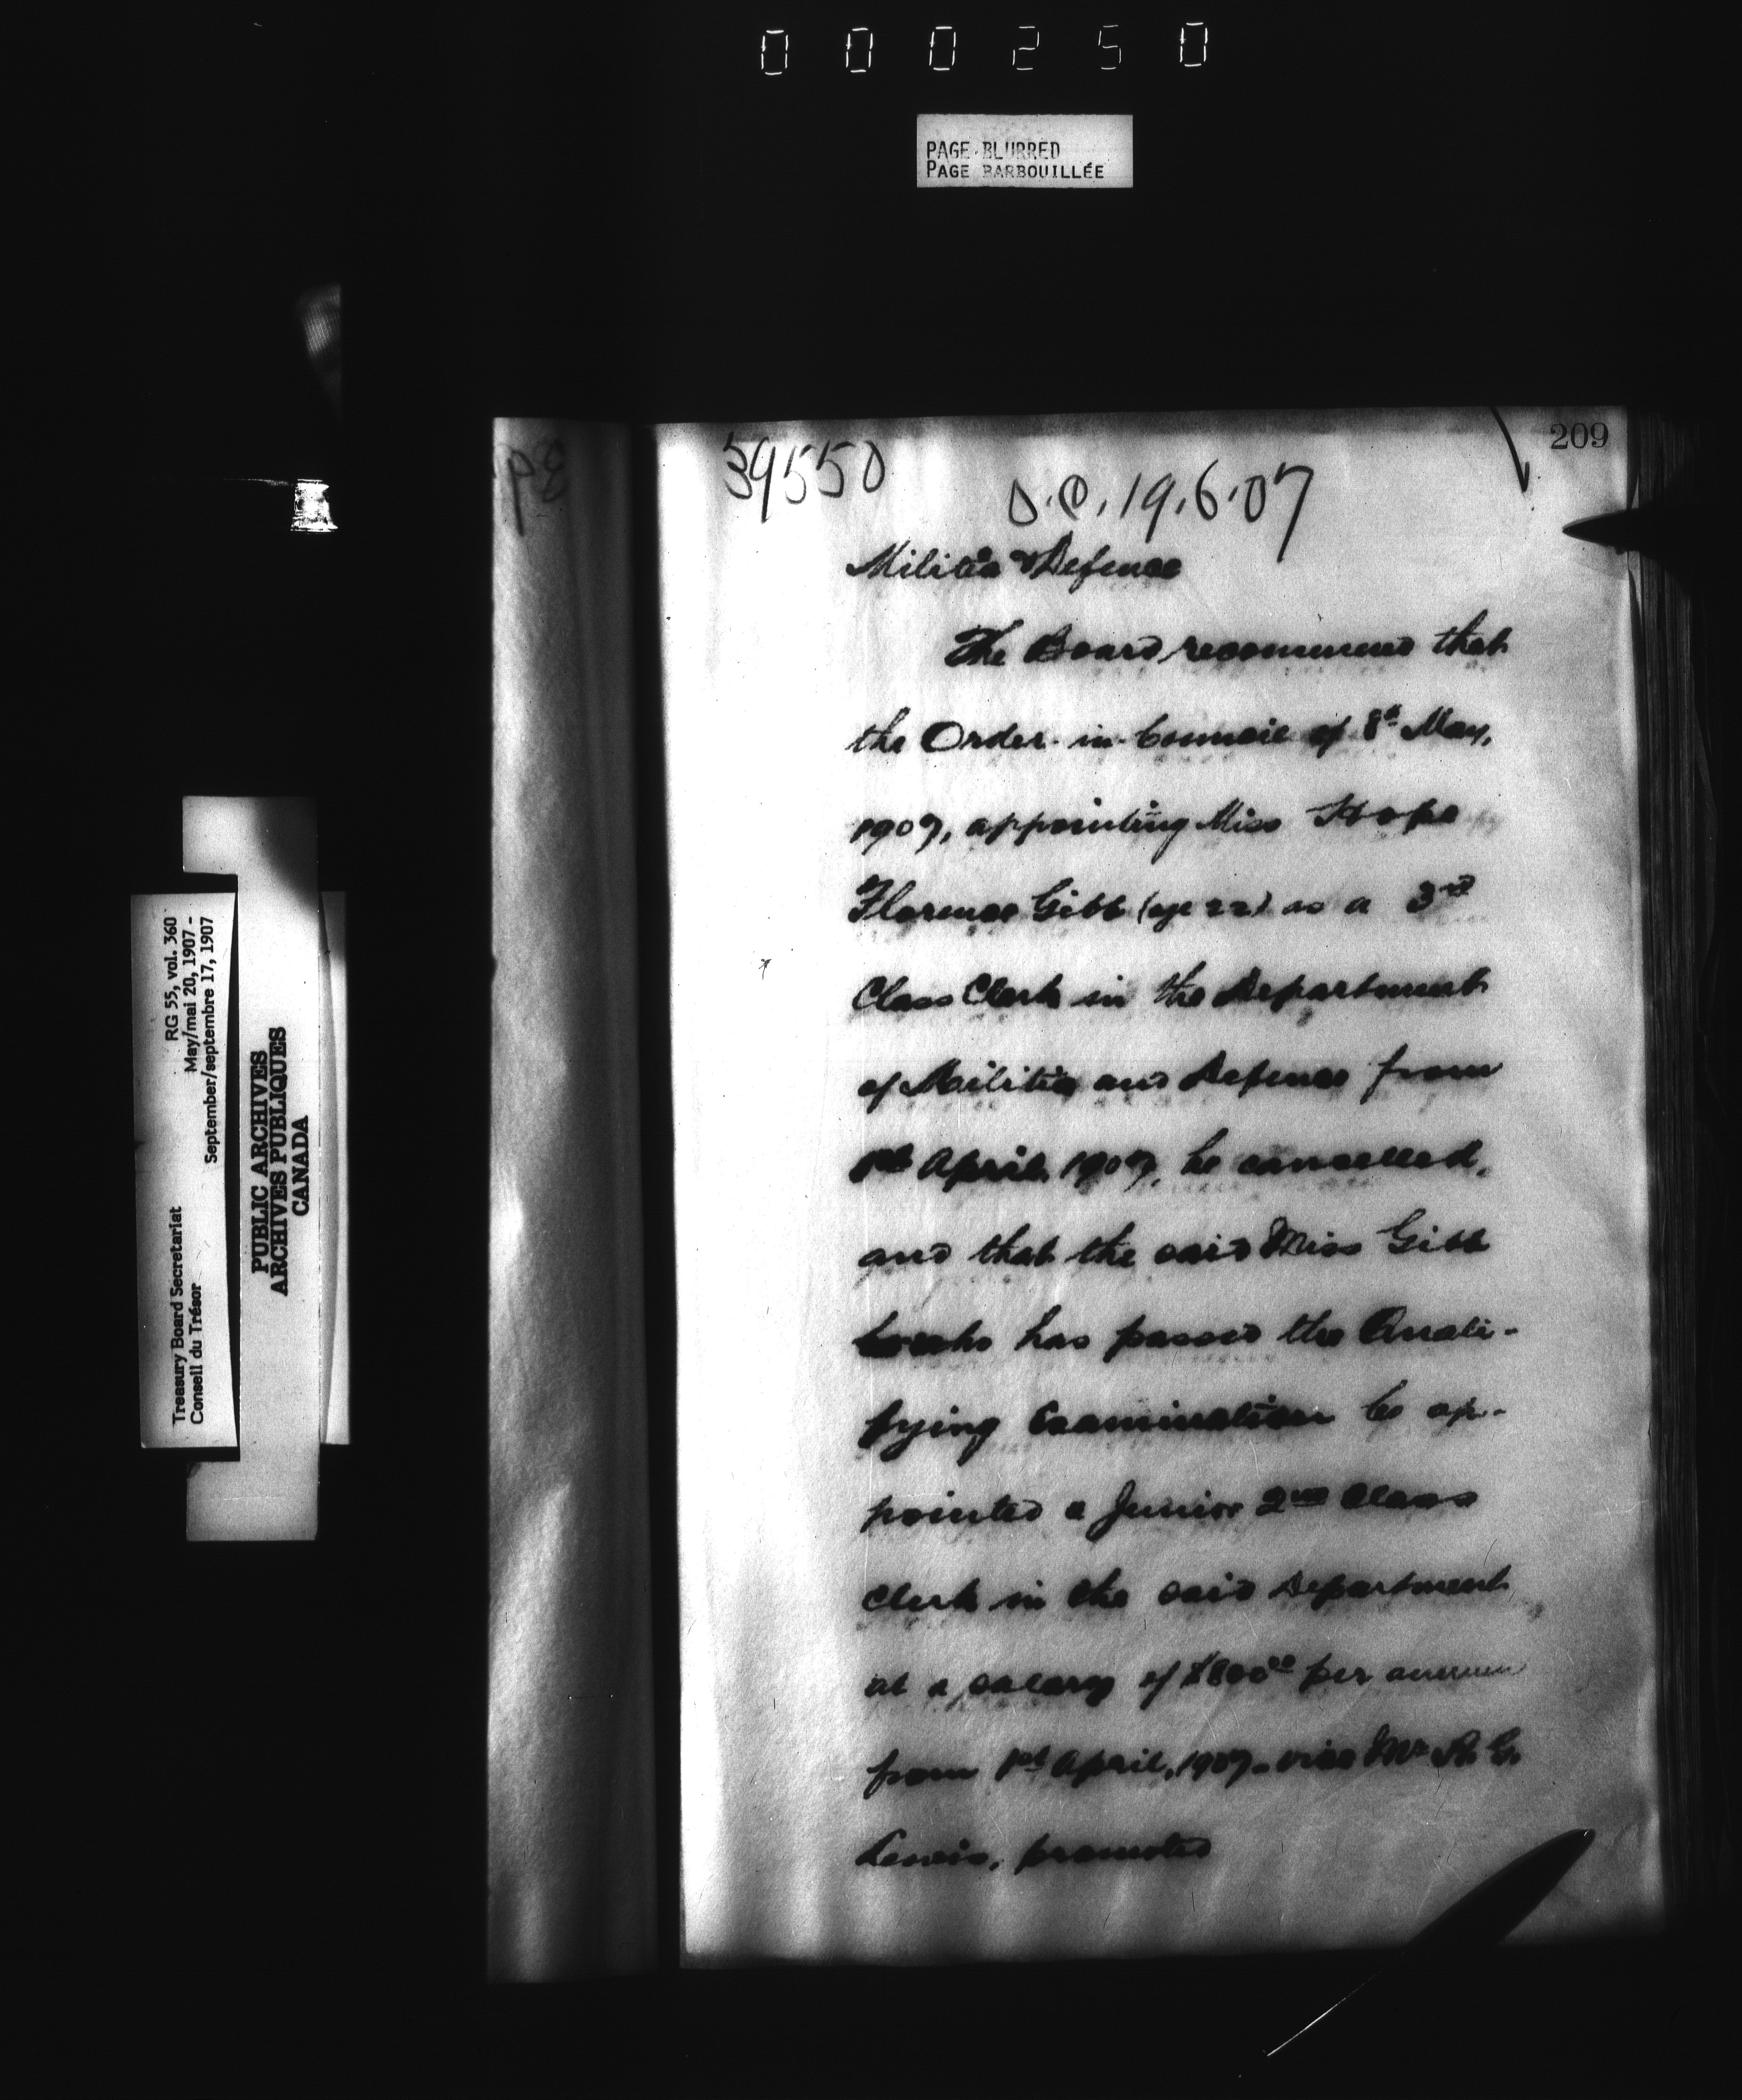 000250
PAGE BLURRED
PAGE BARBOUILLÉE
209
39550
O.C. 19.6.07
Militia & Defence
The Board recommend that
the Order-in-Council of 8th May,
1907, appointing Miss Hope
Florence Gibb (age 22) as a 3rd
Class Clerk in the Department
of Militia and Defence from
1st April 1907, be cancelled,
and that the said Miss Gibb
who has passed the Quali-
fying Examination be ap-
pointed a Junior 2nd Class
Clerk in the said Department
at a salary of $800.00 per annum
from 1st April, 1907, vice Mr
Lewis, promoted
RG 55, vol. 360
May/mai 20, 1907 -
September/septembre 17, 1907
Treasury Board Secretariat
Conseil du Trésor
PUBLIC ARCHIVES
ARCHIVES PUBLIQUES
CANADA